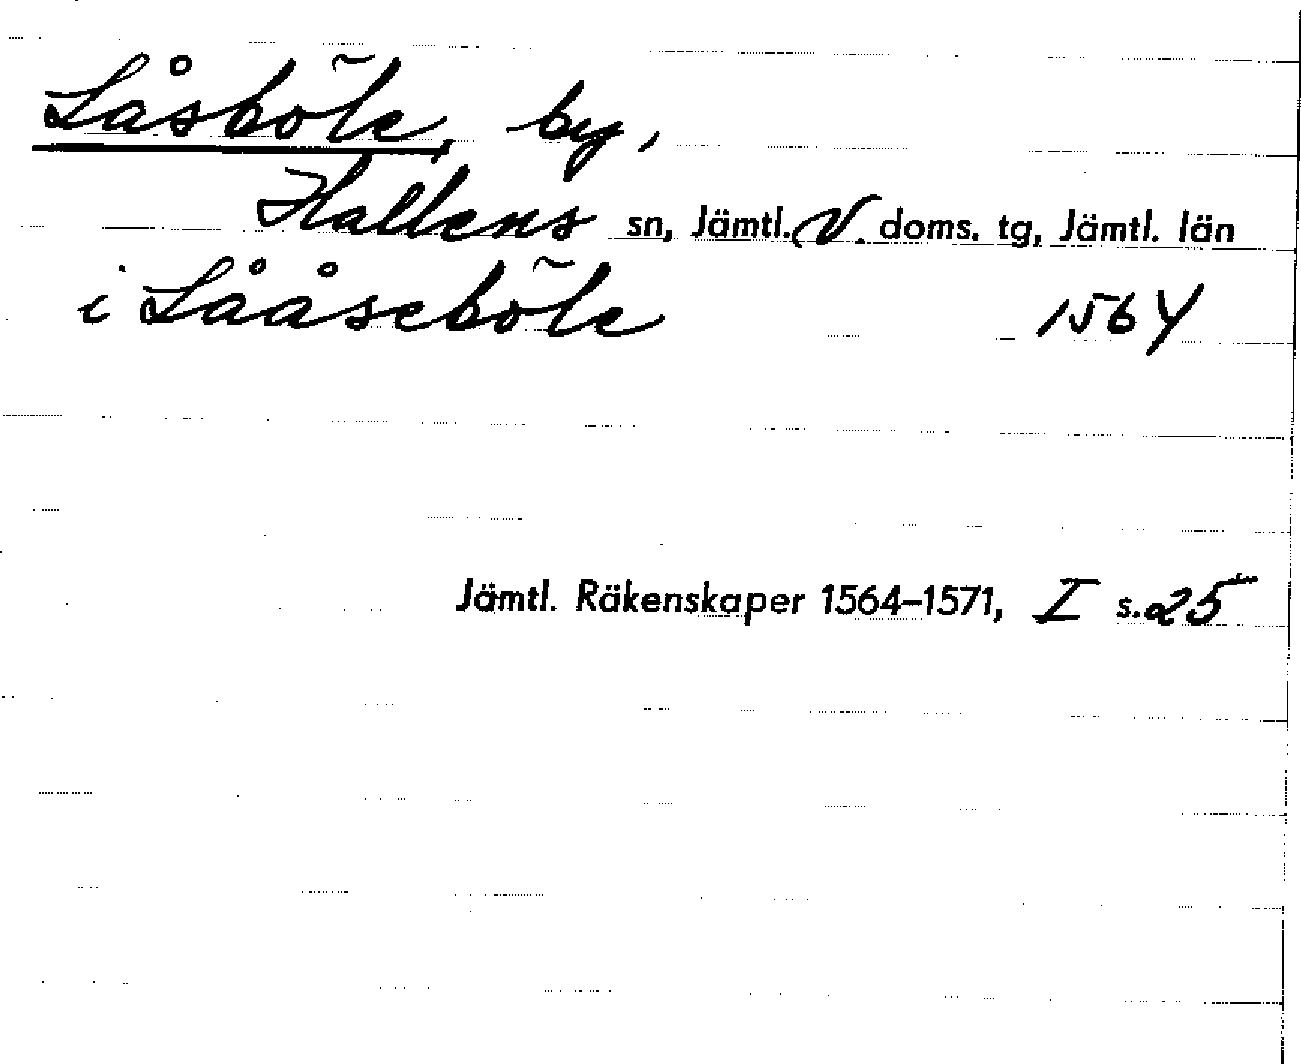 Låsböle, by,
Hallens sn, Jämtl. V. doms. tg, Jämtl. län
i Lååseböle 1564
Jämtl. Räkenskaper 1564–1571, I s. 25